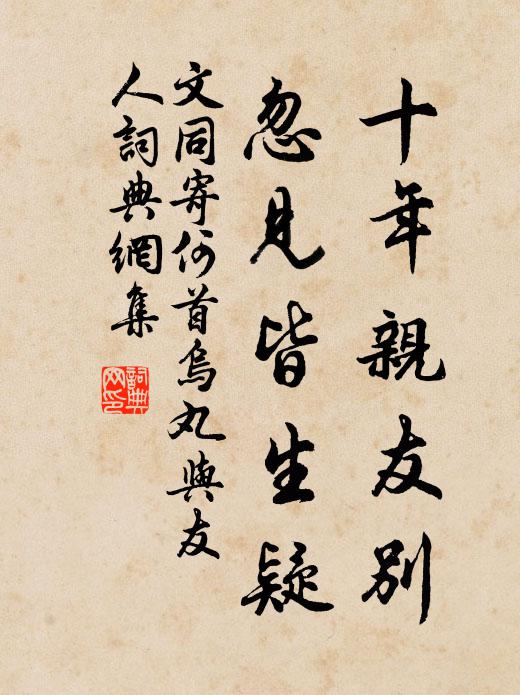 十年親友別
忽見皆生疑
文同寄何首烏丸與友
人詞典網集
詞典
网印